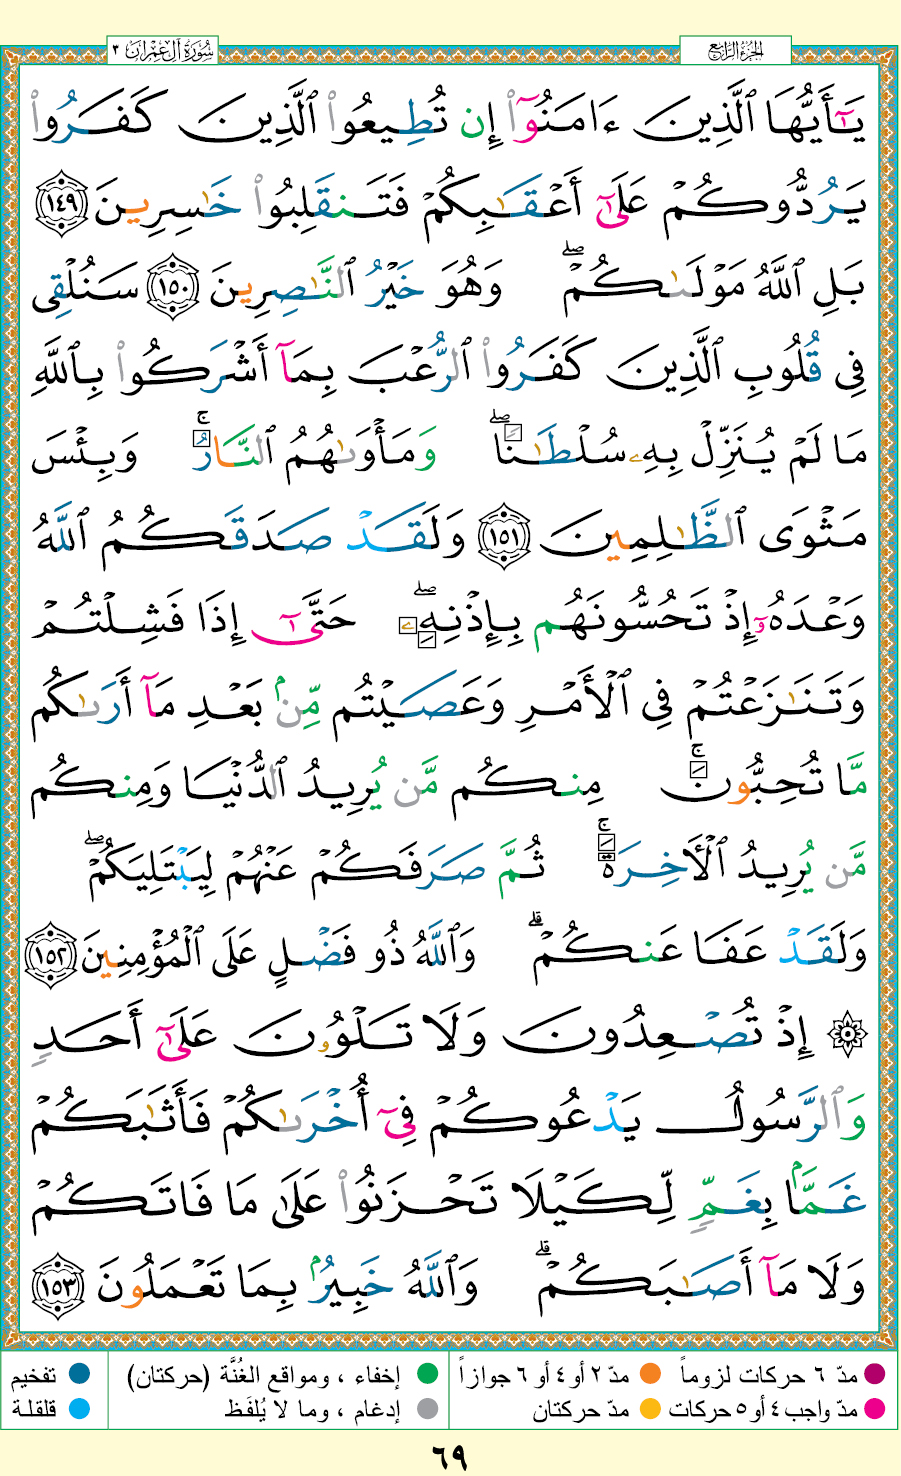 سُورَةُ آلِ عِمْرَان ٣
الجُزْءُ الرَّابِع
يَٰٓأَيُّهَا ٱلَّذِينَ ءَامَنُوٓا۟ إِن تُطِيعُوا۟ ٱلَّذِينَ كَفَرُوا۟
يَرُدُّوكُمْ عَلَىٰٓ أَعْقَٰبِكُمْ فَتَنقَلِبُوا۟ خَٰسِرِينَ ١٤٩
بَلِ ٱللَّهُ مَوْلَىٰكُمْ ۖ وَهُوَ خَيْرُ ٱلنَّٰصِرِينَ ١٥٠ سَنُلْقِى
فِى قُلُوبِ ٱلَّذِينَ كَفَرُوا۟ ٱلرُّعْبَ بِمَآ أَشْرَكُوا۟ بِٱللَّهِ
مَا لَمْ يُنَزِّلْ بِهِۦ سُلْطَٰنًا ۖ وَمَأْوَىٰهُمُ ٱلنَّارُ ۚ وَبِئْسَ
مَثْوَى ٱلظَّٰلِمِينَ ١٥١ وَلَقَدْ صَدَقَكُمُ ٱللَّهُ
وَعْدَهُۥٓ إِذْ تَحُسُّونَهُم بِإِذْنِهِۦ ۖ حَتَّىٰٓ إِذَا فَشِلْتُمْ
وَتَنَٰزَعْتُمْ فِى ٱلْأَمْرِ وَعَصَيْتُم مِّنۢ بَعْدِ مَآ أَرَىٰكُم
مَّا تُحِبُّونَ ۚ مِنكُم مَّن يُرِيدُ ٱلدُّنْيَا وَمِنكُم
مَّن يُرِيدُ ٱلْأَخِرَةَ ۚ ثُمَّ صَرَفَكُمْ عَنْهُمْ لِيَبْتَلِيَكُمْ ۖ
وَلَقَدْ عَفَا عَنكُمْ ۗ وَٱللَّهُ ذُو فَضْلٍ عَلَى ٱلْمُؤْمِنِينَ ١٥٢
۞ إِذْ تُصْعِدُونَ وَلَا تَلْوُۥنَ عَلَىٰٓ أَحَدٍ
وَٱلرَّسُولُ يَدْعُوكُمْ فِىٓ أُخْرَىٰكُمْ فَأَثَٰبَكُمْ
غَمًّۢا بِغَمٍّ لِّكَيْلَا تَحْزَنُوا۟ عَلَىٰ مَا فَاتَكُمْ
وَلَا مَآ أَصَٰبَكُمْ ۗ وَٱللَّهُ خَبِيرٌۢ بِمَا تَعْمَلُونَ ١٥٣
مدّ ٦ حركات لزوماً مدّ ٢ أو ٤ أو ٦ جوازاً إخفاء ، ومواقع الغُنَّة (حركتان) تفخيم
مدّ واجب ٤ أو ٥ حركات مدّ حركتان إدغام ، وما لا يُلفَظ قلقلة
٦٩